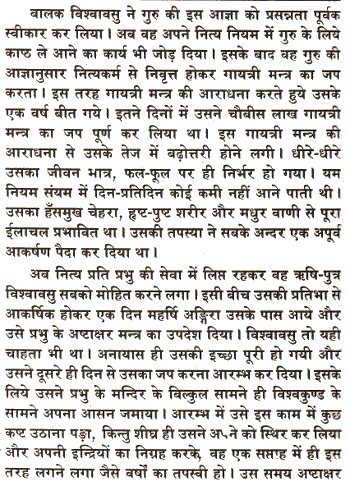 बालक विश्वावसु ने गुरु की इस आज्ञा को प्रसन्नता पूर्वक
स्वीकार कर लिया। अब वह अपने नित्य नियम में गुरु के लिये
काष्ठ ले आने का कार्य भी जोड़ दिया। इसके बाद वह गुरु की
आज्ञानुसार नित्यकर्म से निवृत्त होकर गायत्री मन्त्र का जप
करता। इस तरह गायत्री मन्त्र की आराधना करते हुये उसके
एक वर्ष बीत गये। इतने दिनों में उसने चौबीस लाख गायत्री
मन्त्र का जप पूर्ण कर लिया था। इस गायत्री मन्त्र की
आराधना से उसके तेज में बढ़ोत्तरी होने लगी। धीरे-धीरे
उसका जीवन भात्र, फल-फूल पर ही निर्भर हो गया। यम
नियम संयम में दिन-प्रतिदिन कोई कमी नहीं आने पाती थी।
उसका हँसमुख चेहरा, हृष्ट-पुष्ट शरीर और मधुर वाणी से पूरा
ईलाचल प्रभावित था। उसकी तपस्या ने सबके अन्दर एक अपूर्व
आकर्षण पैदा कर दिया था।
अब नित्य प्रति प्रभु की सेवा में लिप्त रहकर वह ऋषि-पुत्र
विश्वावसु सबको मोहित करने लगा। इसी बीच उसकी प्रतिभा से
आकर्षिक होकर एक दिन महर्षि अङ्गिरा उसके पास आये और
उसे प्रभु के अष्टाक्षर मन्त्र का उपदेश दिया। विश्वावसु तो यही
चाहता भी था। अनायास ही उसकी इच्छा पूरी हो गयी और
उसने दूसरे ही दिन से उसका जप करना आरम्भ कर दिया। इसके
लिये उसने प्रभु के मन्दिर के बिल्कुल सामने ही विश्वकुण्ड के
सामने अपना आसन जमाया। आरम्भ में उसे इस काम में कुछ
कष्ट उठाना पड़ा, किन्तु शीघ्र ही उसने अपने को स्थिर कर लिया
और अपनी इन्द्रियों का निग्रह करके, वह एक सप्ताह में ही इस
तरह लगने लगा जैसे वर्षों का तपस्वी हो। उस समय अष्टाक्षर